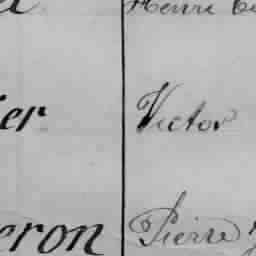 Henri
er Victor
eron Pierre